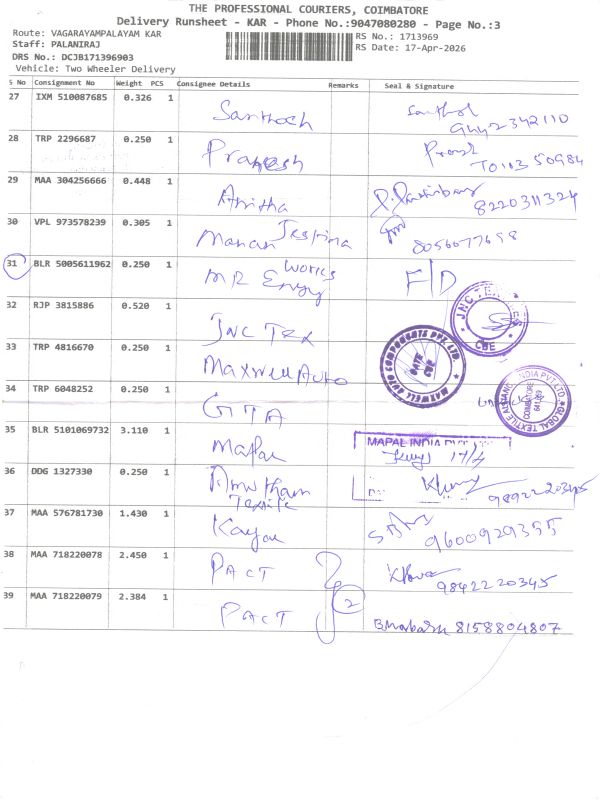 THE PROFESSIONAL COURIERS, COIMBATORE
Delivery Runsheet - KAR - Phone No.:9047080280 - Page No.:3
Route: VAGARAYAMPALAYAM KAR
Staff: PALANIRAJ
DRS No.: DCJB171396903
Vehicle: Two Wheeler Delivery
RS No.: 1713969
RS Date: 17-Apr-2026
S No Consignment No Weight PCS Consignee Details Remarks Seal & Signature
27 IXM 510087685 0.326 1 Santhosh
9442342110
28 TRP 2296687 0.250 1 Prakash
29 MAA 304256666 0.448 1 Anitha
8220311324
30 VPL 973578239 0.305 1 8056677698
31 BLR 5005611962 0.250 1 MR Engg Works F/D
32 RJP 3815886 0.520 1 JNC Tex
JNC TEX
CBE
33 TRP 4816670 0.250 1 Maxwell Auto
MAXWELL AUTO COMPONENTS PVT. LTD.
DATE
CBE
34 TRP 6048252 0.250 1 GTA
GLOBAL TEXTILE ALLIANCE INDIA PVT.LTD
COIMBATORE
35 BLR 5101069732 3.110 1 Mapal
MAPAL INDIA PVT LTD
17/4
36 DDG 1327330 0.250 1 Amutham Textile
9892220345
37 MAA 576781730 1.430 1
9600929355
38 MAA 718220078 2.450 1 PACT
9842220345
39 MAA 718220079 2.384 1 PACT 2
8158804807